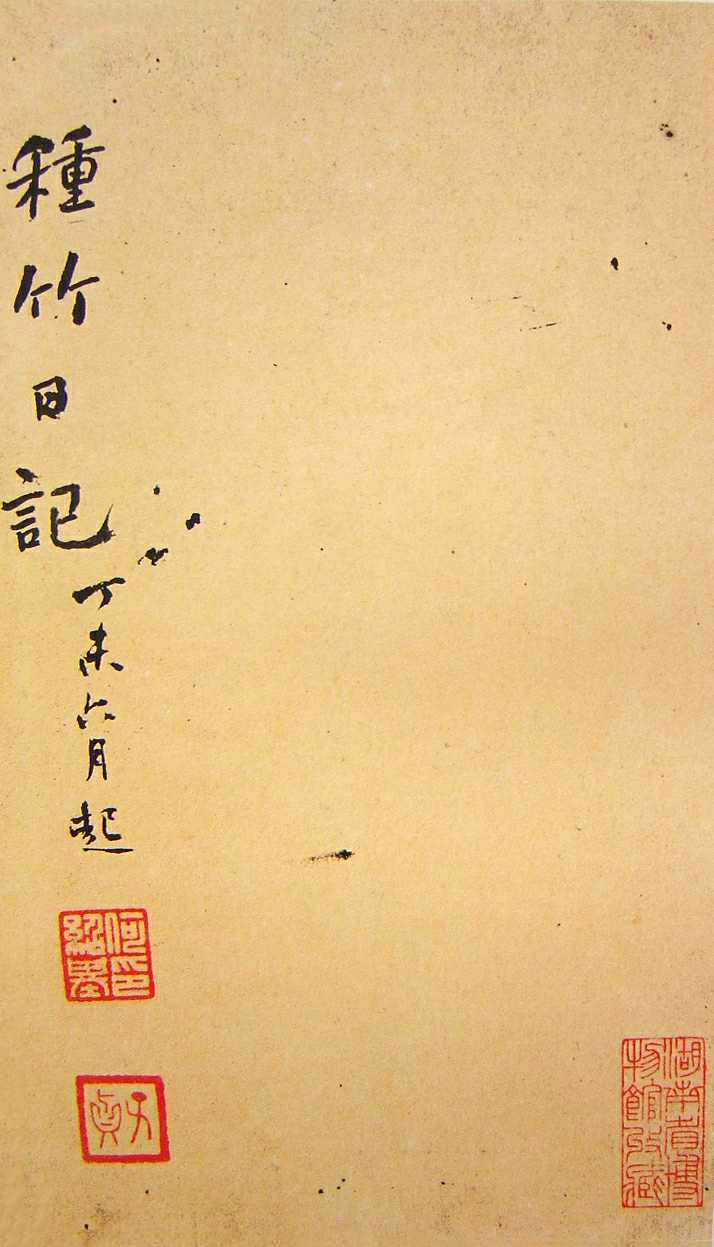 種竹日記
丁未六月起
何印
紹基
子貞
湖南省博
物館收藏